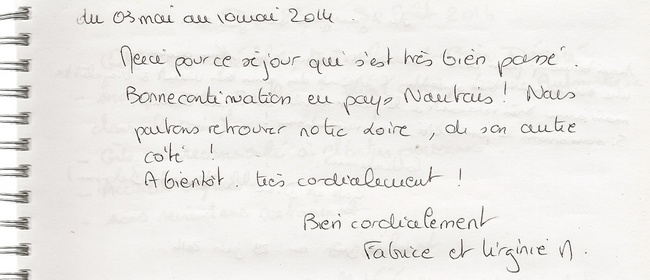 du 03 mai au 10 mai 2014.
Merci pour ce séjour qui s'est très bien passé.
Bonne continuation en pays Nantais ! Nous
partons retrouver notre Loire, de son autre
côté !
A bientôt. très cordialement !
Bien cordialement
Fabrice et Virginie N.